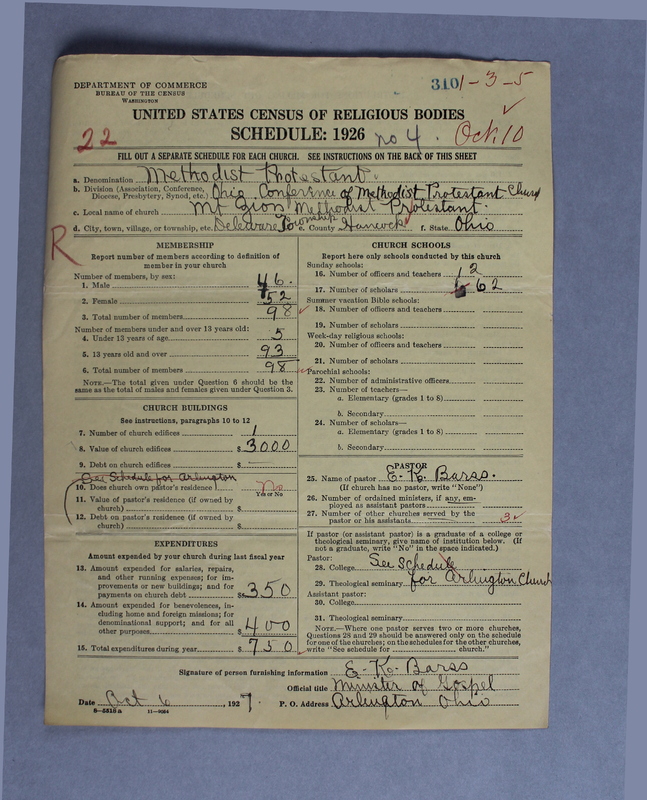 DEPARTMENT OF COMMERCE
BUREAU OF THE CENSUS
WASHINGTON
310 1-3-5
UNITED STATES CENSUS OF RELIGIOUS BODIES
SCHEDULE: 1926
22
no 4.
Oct 10
FILL OUT A SEPARATE SCHEDULE FOR EACH CHURCH. SEE INSTRUCTIONS ON THE BACK OF THIS SHEET
a. Denomination Methodist Protestant.
b. Division (Association, Conference, Diocese, Presbytery, Synod, etc.) Ohio Conference of Methodist Protestant Church
c. Local name of church Mt Zion Methodist Protestant.
d. City, town, village, or township, etc. Deleware Township e. County Hancock f. State Ohio
R
MEMBERSHIP
Report number of members according to definition of
member in your church
Number of members, by sex:
1. Male 46.
2. Female 52
3. Total number of members 98
Number of members under and over 13 years old:
4. Under 13 years of age 5
5. 13 years old and over 93
6. Total number of members 98
NOTE.—The total given under Question 6 should be the
same as the total of males and females given under Question 3.
CHURCH BUILDINGS
See instructions, paragraphs 10 to 12
7. Number of church edifices 1
8. Value of church edifices $ 3000
9. Debt on church edifices $
See Schedule for Arlington
10. Does church own pastor's residence? No
Yes or No
11. Value of pastor's residence (if owned by
church) $
12. Debt on pastor's residence (if owned by
church) $
EXPENDITURES
Amount expended by your church during last fiscal year
13. Amount expended for salaries, repairs,
and other running expenses; for im-
provements or new buildings; and for
payments on church debt $ 350
14. Amount expended for benevolences, in-
cluding home and foreign missions; for
denominational support; and for all
other purposes $ 400
15. Total expenditures during year $ 750
CHURCH SCHOOLS
Report here only schools conducted by this church
Sunday schools:
16. Number of officers and teachers 12
17. Number of scholars 62
Summer vacation Bible schools:
18. Number of officers and teachers
19. Number of scholars
Week-day religious schools:
20. Number of officers and teachers
21. Number of scholars
Parochial schools:
22. Number of administrative officers
23. Number of teachers—
a. Elementary (grades 1 to 8)
b. Secondary
24. Number of scholars—
a. Elementary (grades 1 to 8)
b. Secondary
PASTOR
25. Name of pastor E. K. Barss.
(If church has no pastor, write "None")
26. Number of ordained ministers, if any, em-
ployed as assistant pastors
27. Number of other churches served by the
pastor or his assistants 3
If pastor (or assistant pastor) is a graduate of a college or
theological seminary, give name of institution below. (If
not a graduate, write "No" in the space indicated.)
Pastor:
28. College See Schedule
29. Theological seminary for Arlington Church
Assistant pastor:
30. College
31. Theological seminary
NOTE.—Where one pastor serves two or more churches,
Questions 28 and 29 should be answered only on the schedule
for one of the churches; on the schedules for the other churches,
write "See schedule for church."
Signature of person furnishing information E. K. Barss
Official title Minister of Gospel
Date Oct 6, 1927 P. O. Address Arlington Ohio
8-5518a 11-9024